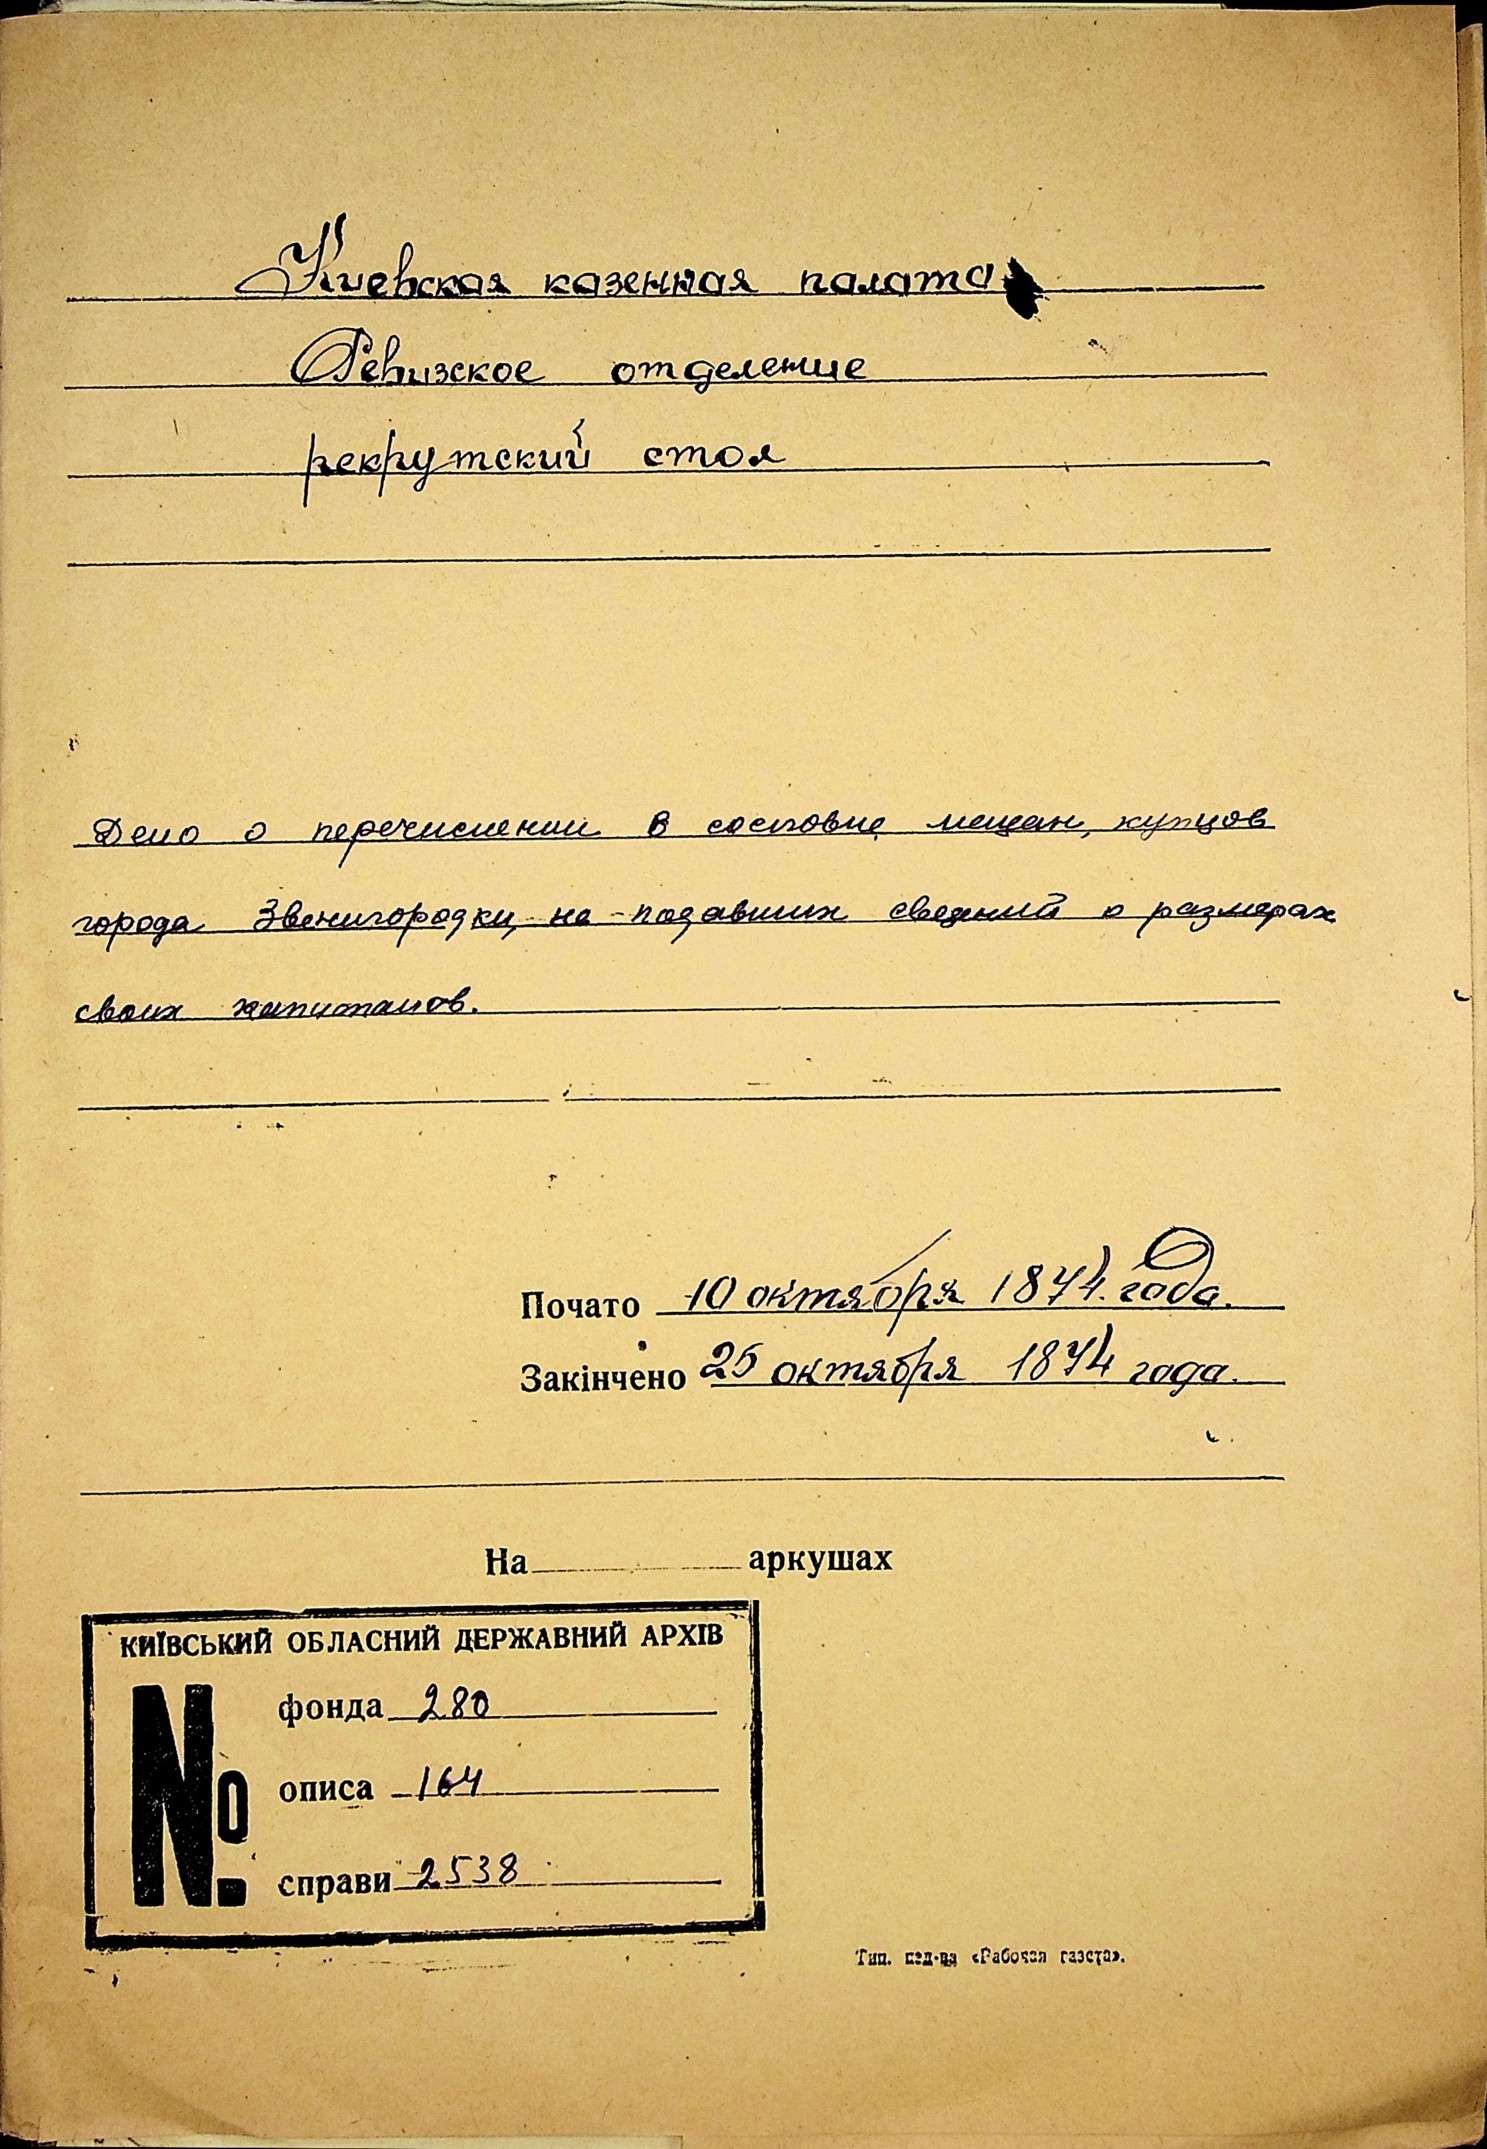 Киевская казенная палата
Ревизское отделение
рекрутский стол
Дело о перечислении в сословие мещан, купцов
города Звенигородки, не подавших сведений о размерах
своих капиталов.
Почато 10 октября 1874 года.
Закінчено 25 октября 1874 года.
На аркушах
КИЇВСЬКИЙ ОБЛАСНИЙ ДЕРЖАВНИЙ АРХІВ
№
фонда 280
описа 164
справи 2538
Тип. изд-ва «Рабочая газета».